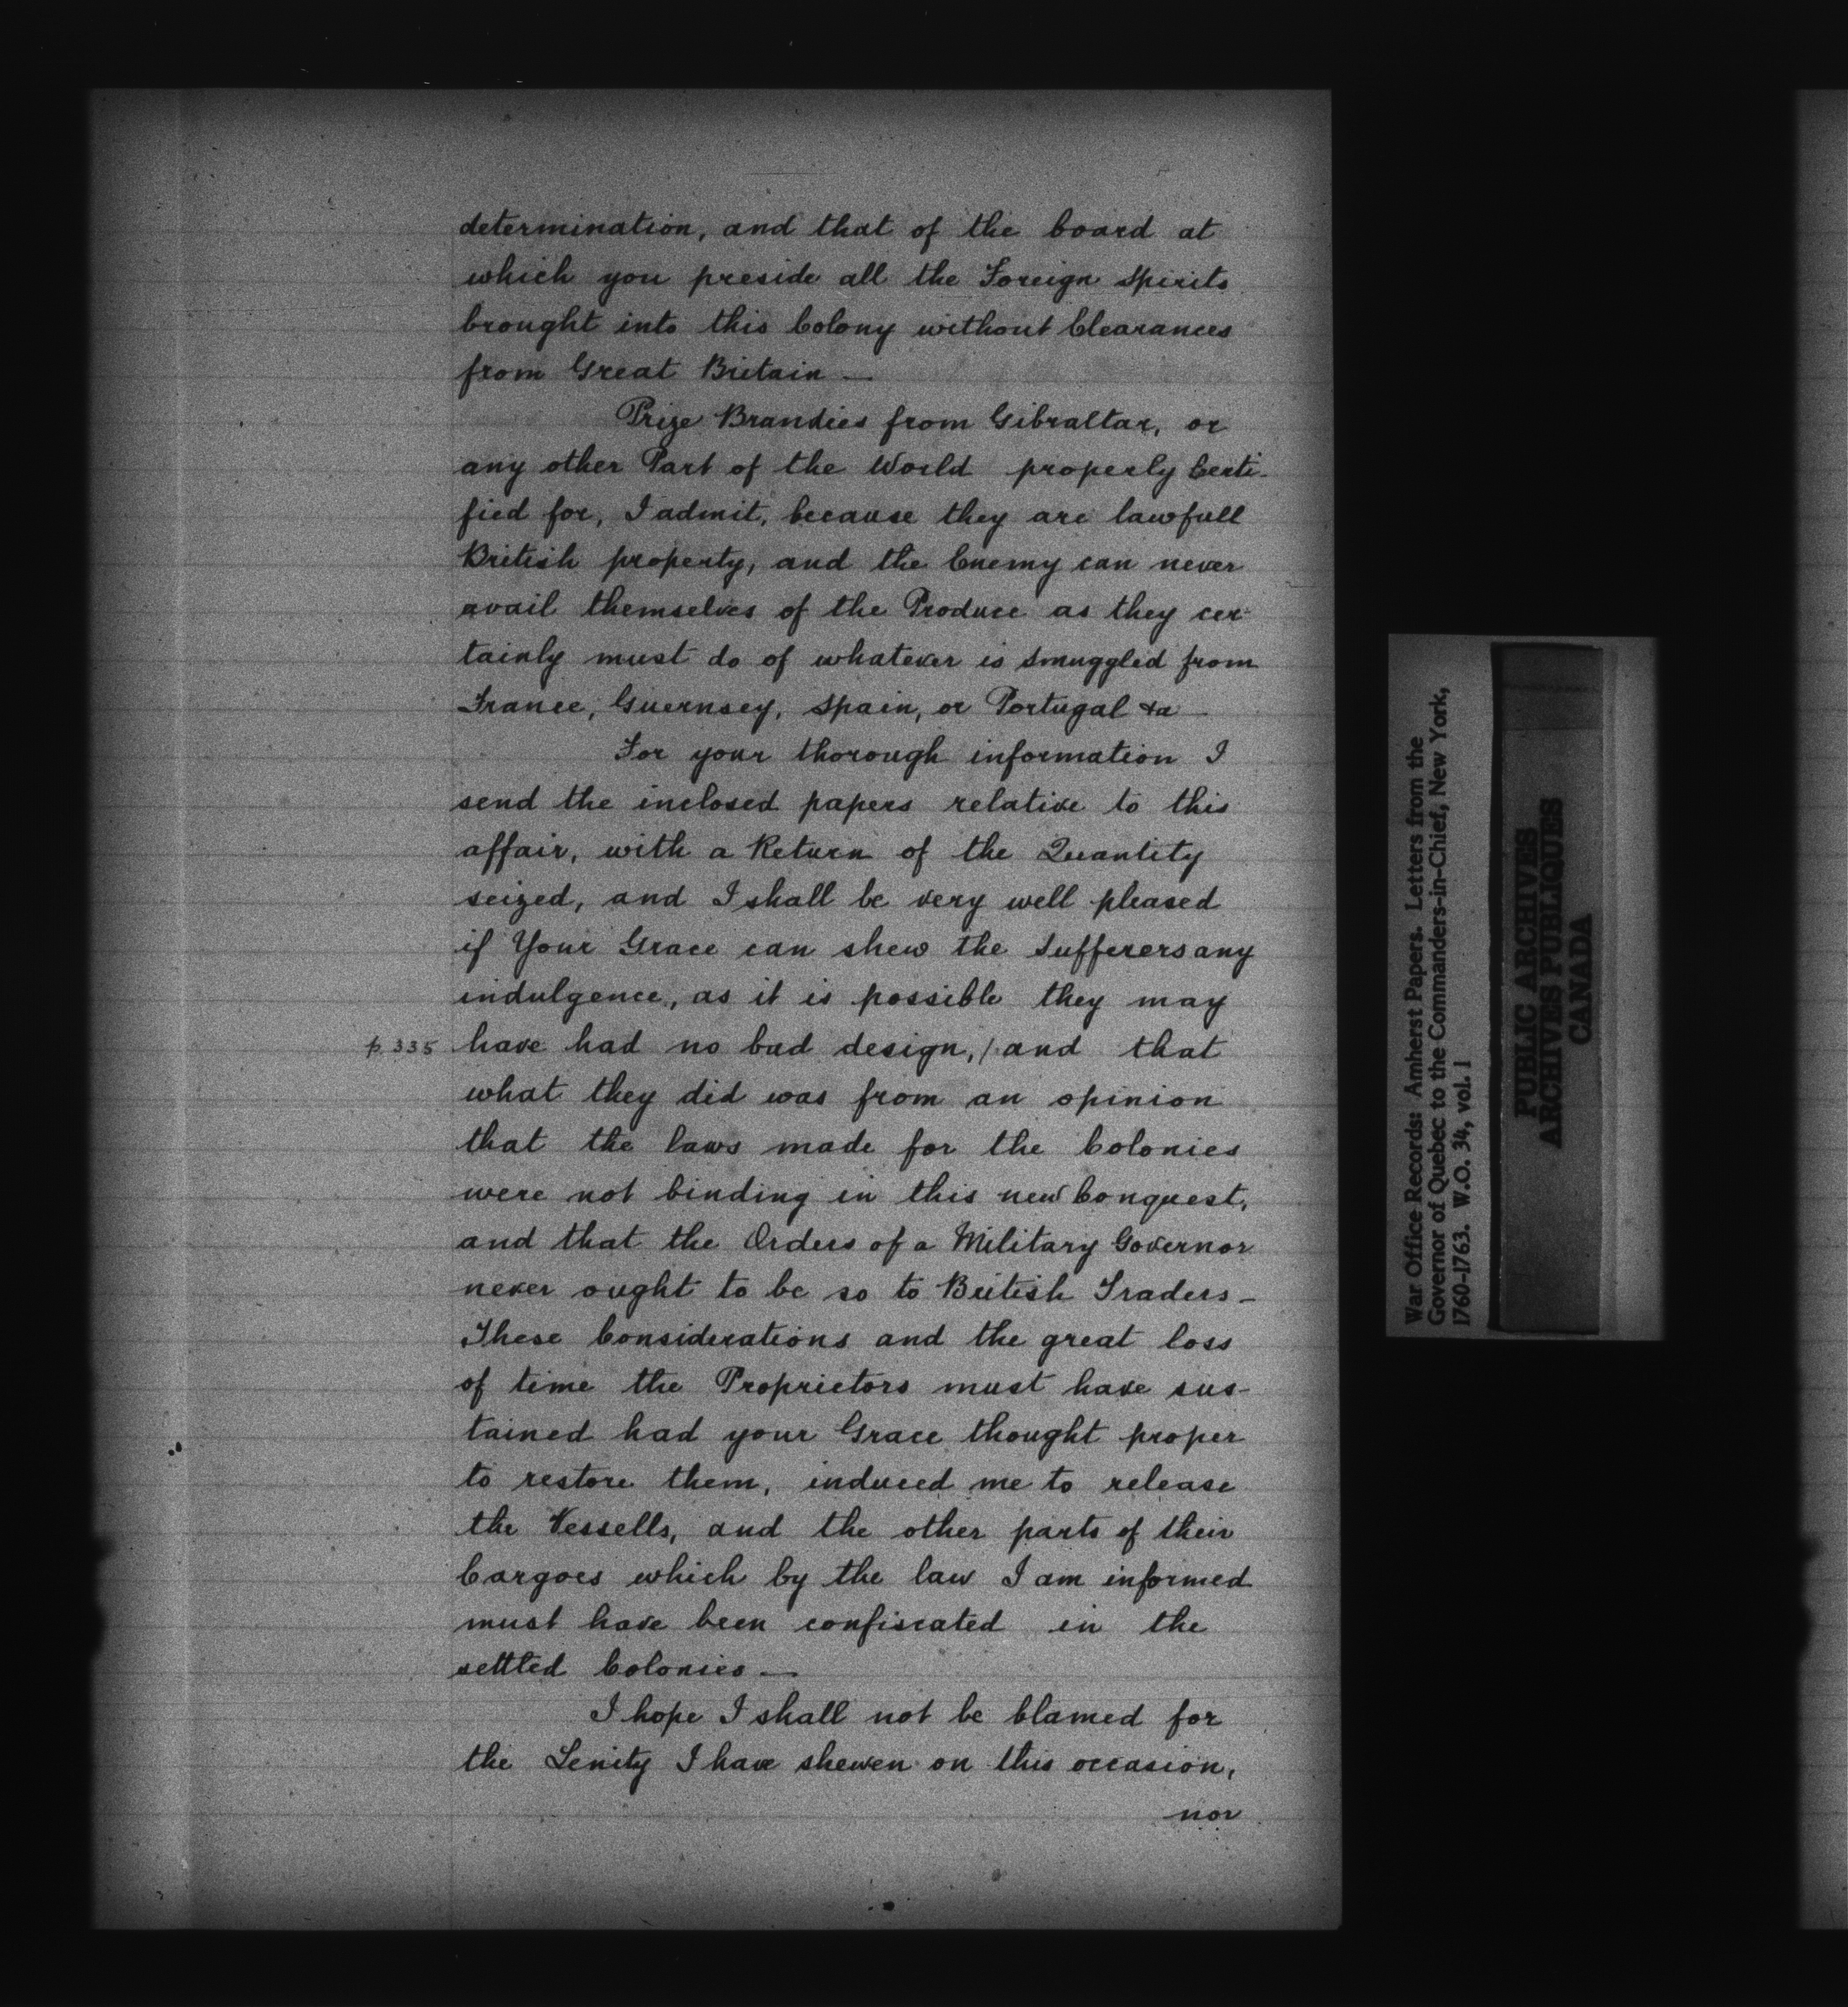 determination, and that of the board at
which you preside all the Foreign Spirits
brought into this Colony without Clearances
from Great Britain —
Prize Brandies from Gibraltar, or
any other Part of the World properly Certi-
fied for, I admit, because they are lawfull
British property, and the Enemy can never
avail themselves of the Produce as they cer-
tainly must do of whatever is Smuggled from
France, Guernsey, Spain, or Portugal &a —
For your thorough information I
send the inclosed papers relative to this
affair, with a Return of the Quantity
seized, and I shall be very well pleased
if Your Grace can shew the Sufferers any
indulgence, as it is possible they may
p. 335 have had no bad design, / and that
what they did was from an opinion
that the laws made for the Colonies
were not binding in this new Conquest,
and that the Orders of a Military Governor
never ought to be so to British Traders —
These Considerations and the great loss
of time the Proprietors must have sus-
tained had your Grace thought proper
to restore them, induced me to release
the Vessells, and the other parts of their
Cargoes which by the law I am informed
must have been confiscated in the
settled Colonies —
I hope I shall not be blamed for
the Lenity I have shewen on this occasion,
nor
War Office Records: Amherst Papers. Letters from the
Governor of Quebec to the Commanders-in-Chief, New York,
1760-1763. W.O. 34, vol. 1
PUBLIC ARCHIVES
ARCHIVES PUBLIQUES
CANADA